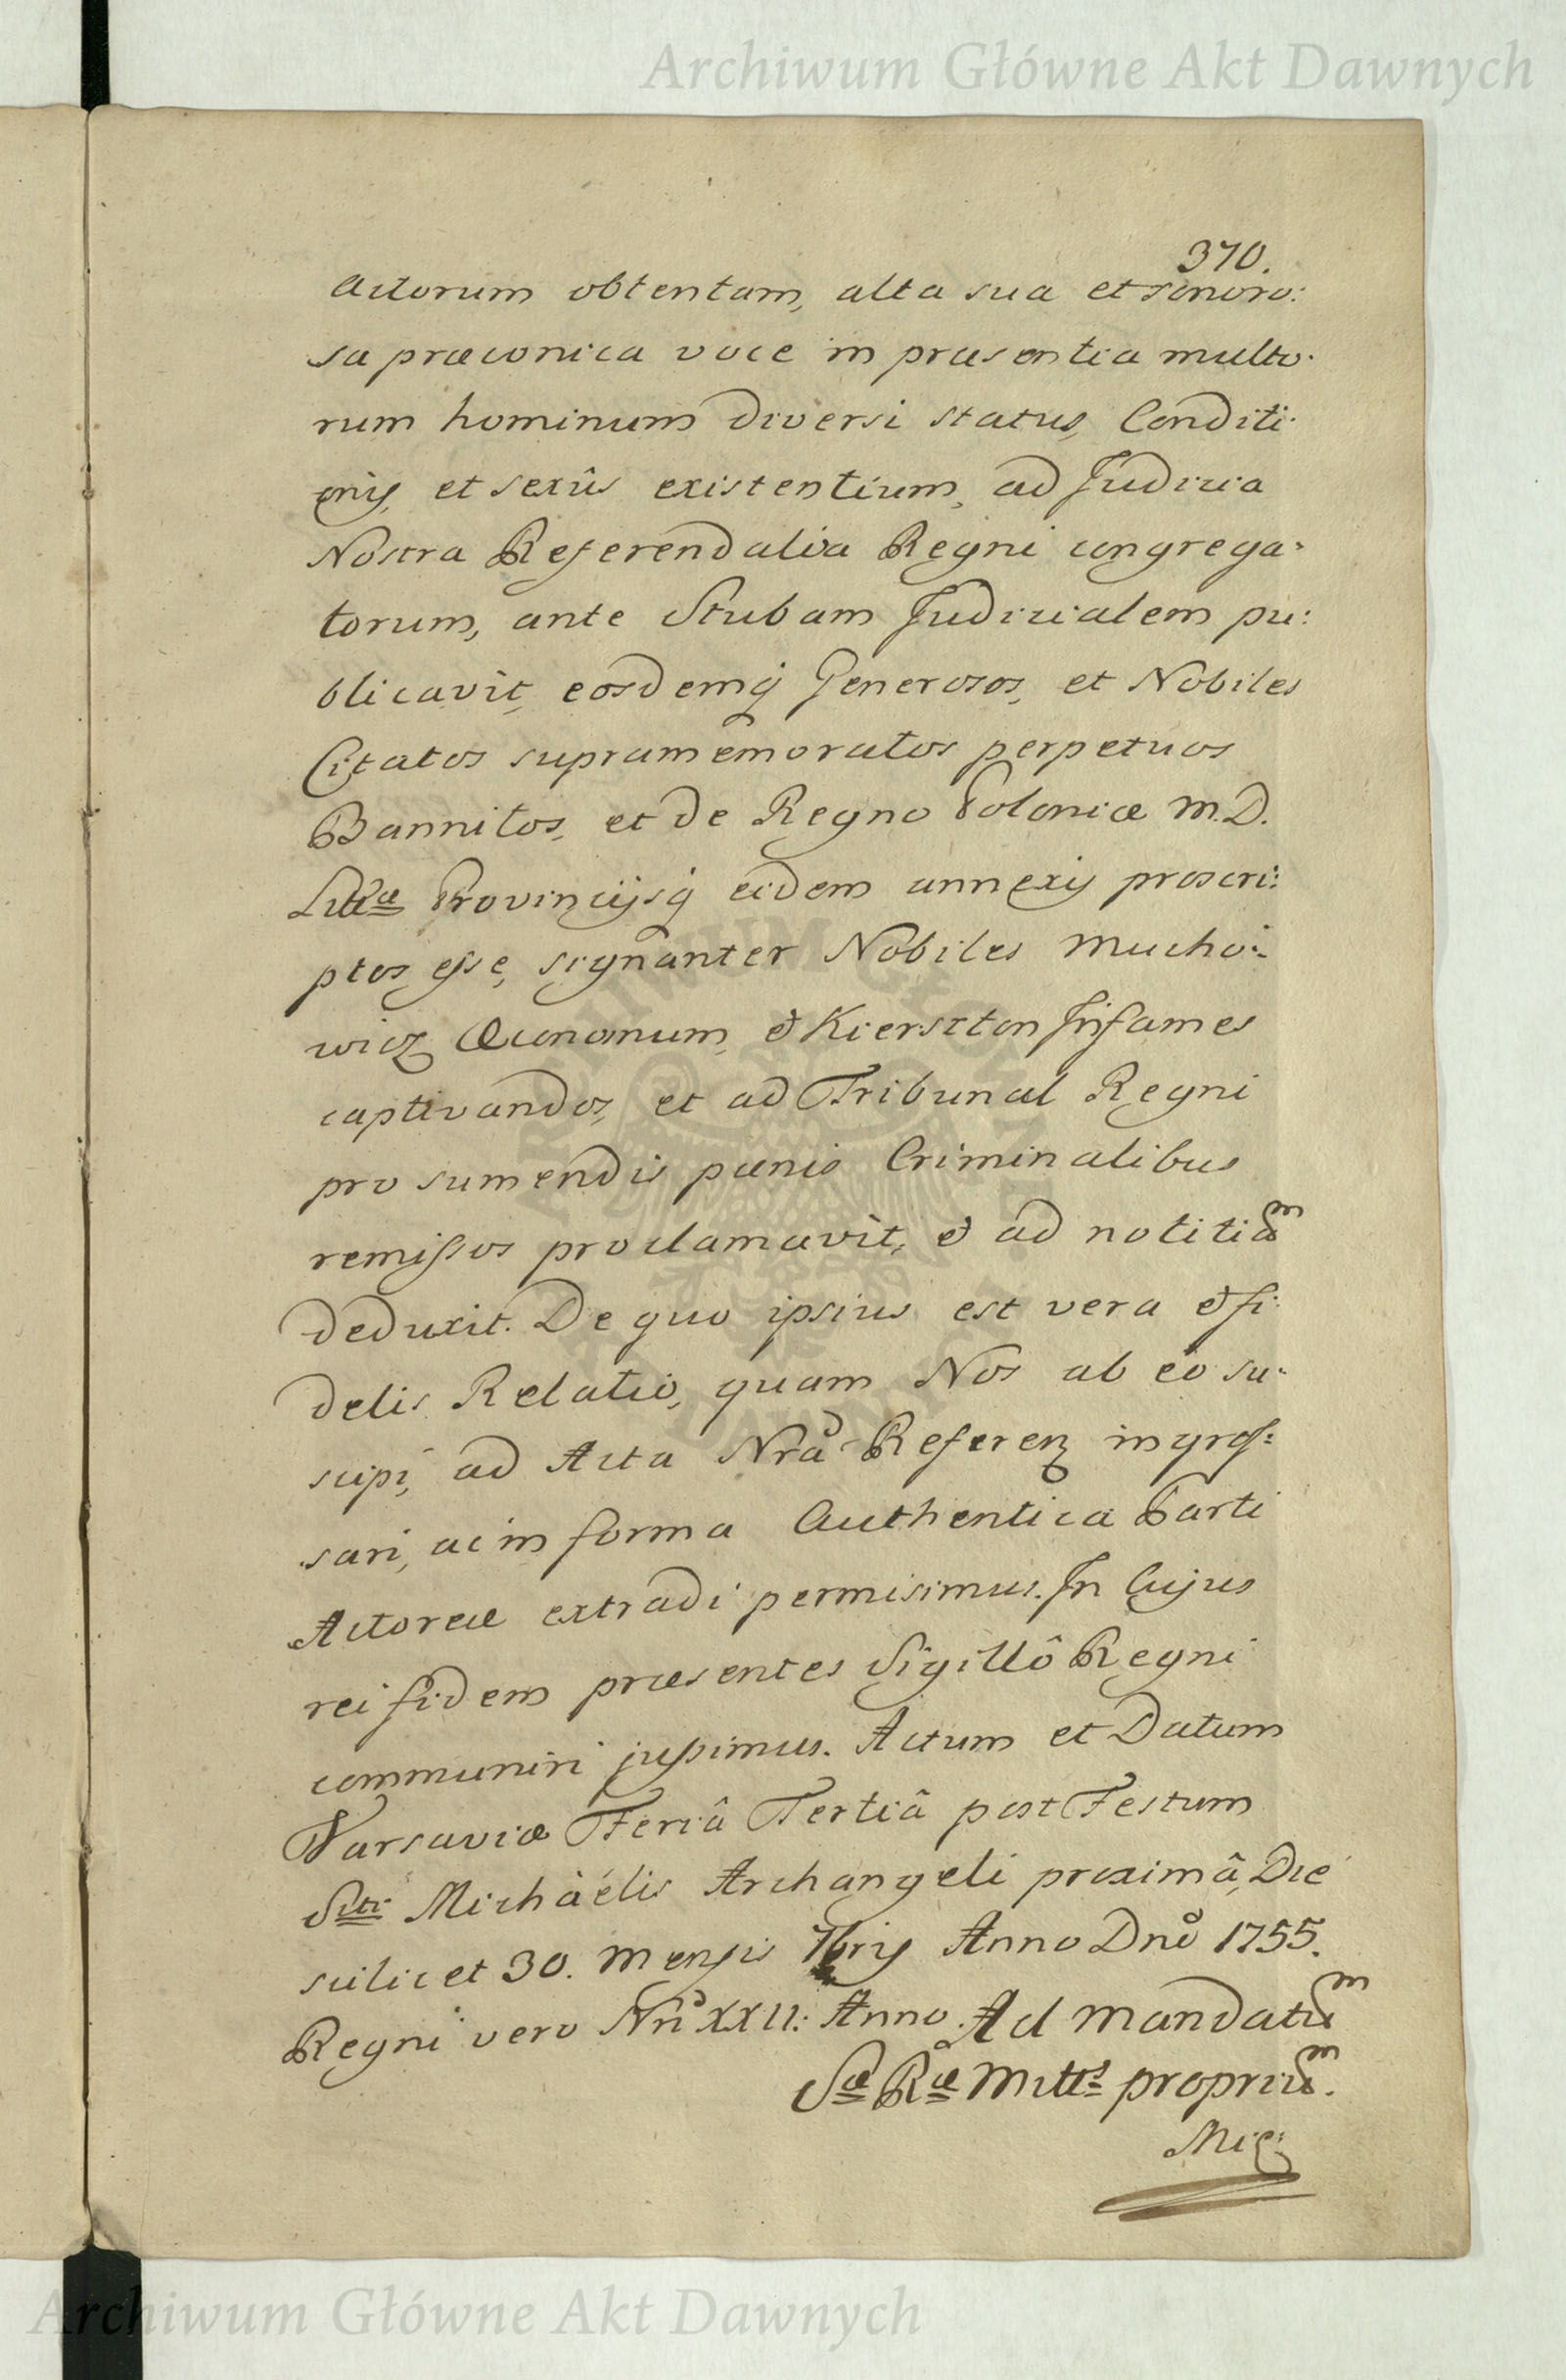 Archiwum Główne Akt Dawnych
370.
Actorum obtentam, alta sua et sonoro:
sa præconica voce in præsentia multo:
rum hominum diversi status, Conditi:
onis, et sexûs existentium, ad Judicia
Nostra Referendalia Regni congrega:
torum, ante Stubam Judicialem pu:
blicavit, eosdemq́ Generosos, et Nobiles
Citatos supramemoratos perpetuos
Bannitos, et de Regno Poloniæ M.D.
Littæ Provincÿsq́ eidem annexis proscri:
ptos esse, signanter Nobiles Mucho:
wicz Œconomum, & Kierszton Infames
captivandos, et ad Tribunal Regni
pro sumendis pænis Criminalibus
remissos proclamavit, & ad notitiam
deduxit. De quo ipsius est vera & fi:
delis Relatio, quam Nos ab eo su:
scipi, ad Acta Nra Referen ingros:
sari, ac in forma Authentica Parti
Actoreæ extradi permisimus. In Cujus
rei fidem præsentes Sigillô Regni
communiri jussimus. Actum et Datum
Varsaviæ Feriâ Tertiâ post Festum
Scti Michäélis Archangeli proximâ, Die
scilicet 30. Mensis 7bris Anno Dno 1755.
Regni vero Nri XXII: Anno. Ad Mandatum
Sæ Ræ Mttis proprium.
Archiwum Główne Akt Dawnych